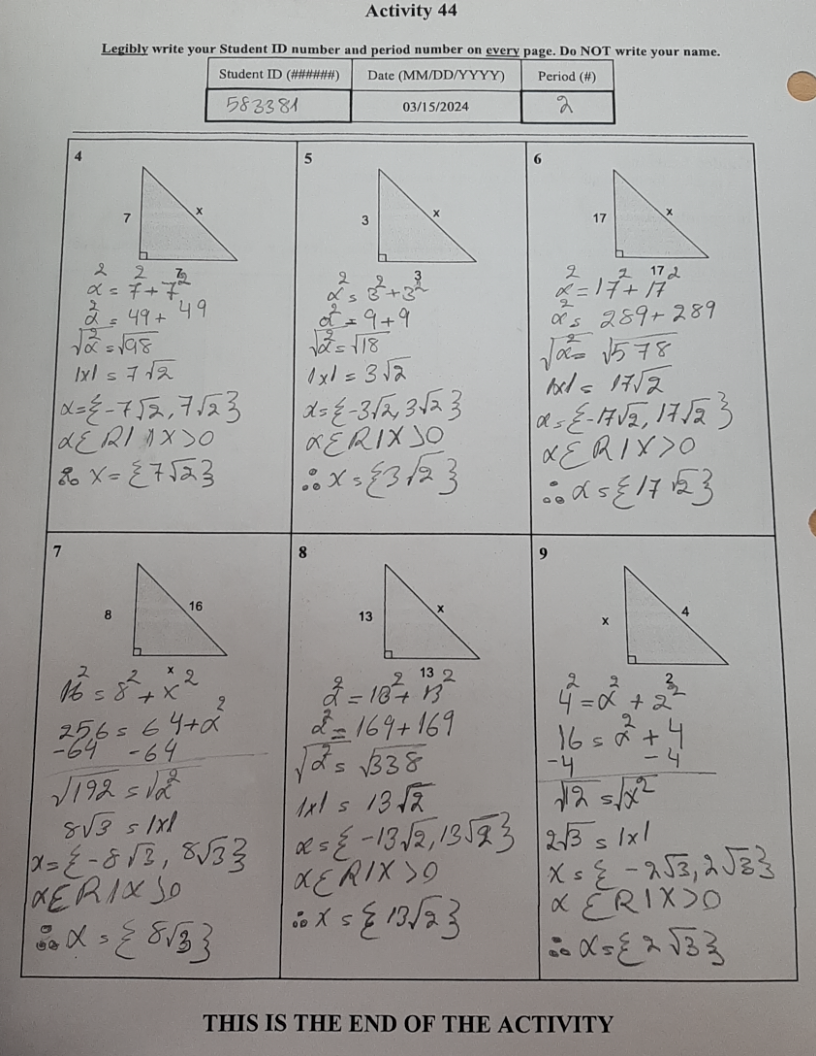 Activity 44
Legibly write your Student ID number and period number on every page. Do NOT write your name.
Student ID (######) Date (MM/DD/YYYY) Period (#)
583381 03/15/2024 2
4
7
x
7
x² = 7² + 7²
x² = 49 + 49
√x² = √98
|x| = 7√2
x = {-7√2, 7√2}
x ∈ R | x > 0
∴ x = {7√2}
5
3
x
3
x² = 3² + 3²
x² = 9 + 9
√x² = √18
|x| = 3√2
x = {-3√2, 3√2}
x ∈ R | x > 0
∴ x = {3√2}
6
17
x
17
x² = 17² + 17²
x² = 289 + 289
√x² = √578
|x| = 17√2
x = {-17√2, 17√2}
x ∈ R | x > 0
∴ x = {17√2}
7
8
16
x
16² = 8² + x²
256 = 64 + x²
-64 -64
√192 = √x²
8√3 = |x|
x = {-8√3, 8√3}
x ∈ R | x > 0
∴ x = {8√3}
8
13
x
13
x² = 13² + 13²
x² = 169 + 169
√x² = √338
|x| = 13√2
x = {-13√2, 13√2}
x ∈ R | x > 0
∴ x = {13√2}
9
x
4
2
4² = x² + 2²
16 = x² + 4
-4 -4
√12 = √x²
2√3 = |x|
x = {-2√3, 2√3}
x ∈ R | x > 0
∴ x = {2√3}
THIS IS THE END OF THE ACTIVITY